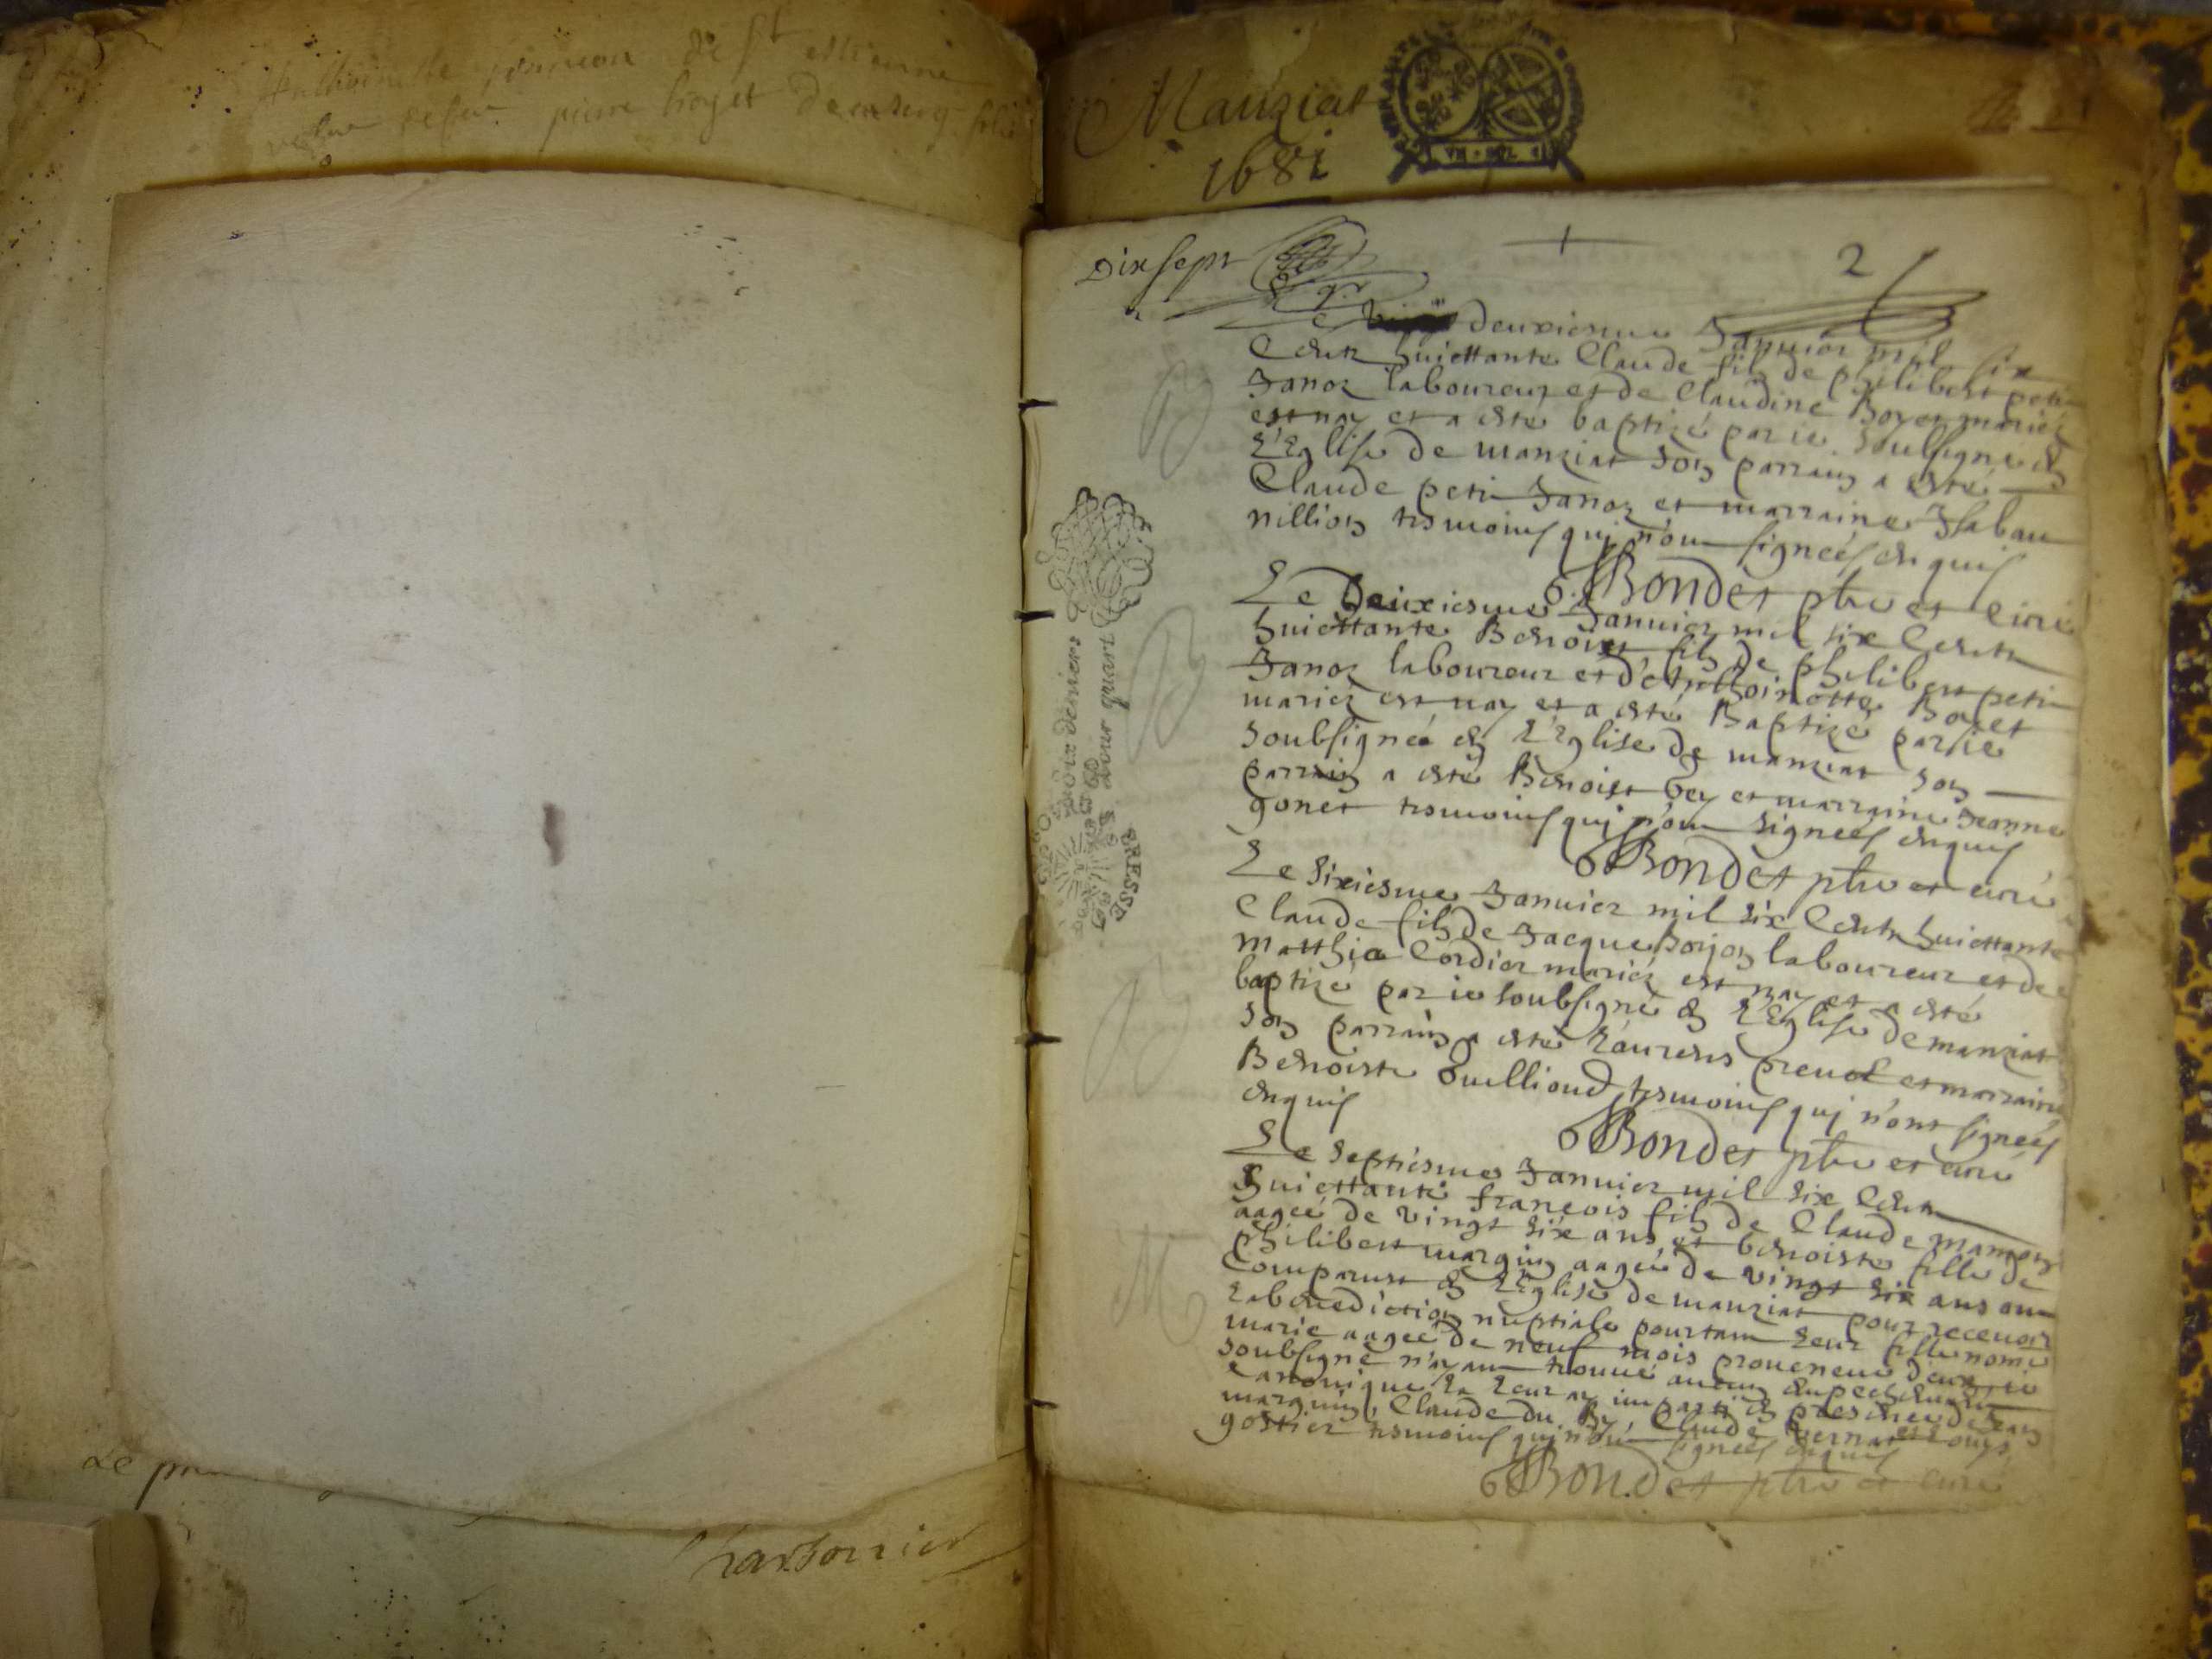 de st estienne
pierre boyet
Le
Charbonnier
Manziat
1681
Dix sept
2
deuxiesme Januier mil six
Cents huicttante Claude fils de philibert petit
Janoz laboureur et de Claudine Boyet mariéz
est nay et a esté baptizé par ie soubsigné en
L'Eglise de manziat son parrain a esté
Claude petit Janoz et marraine Isabau
nillion tesmoins qui n'ont signeés enquis
Bondet ptre et Curé
Le Deuxiesme Januier mil six Cents
huicttante Benoist fils de philibert petit
Janoz laboureur et d'Anthoinette Boyet
mariéz est nay et a esté Baptizé par ie
soubsigné en L'Eglise de manziat son
parrain a esté Benoist bey et marraine Jeanne
gonet tesmoins qui n'ont signeés enquis
Bondet ptre et curé
Le sixiesme Januier mil six Cents huicttante
Claude fils de Jacque laboureur et de
Matthia Cordier mariéz est nay et a esté
baptizé par ie soubsigné en L'Eglise de manziat
son parrain a esté Laurens preuot et marraine
Benoiste Guilliond tesmoins qui n'ont signeés
enquis
Bondet ptre et curé
Le septiesme Januier mil six Cents
huicttante françois fils de Claude
aageé de vingt six ans et benoiste fille de
philibert marguin aageé de vingt six ans ont
Comparust en L'Eglise de manziat pour receuoir
La benediction nuptiale pourtant leur fille nomé
marie aageé de neuf mois proueneue d'eux ie
soubsigné n'ayant trouué aucun empechement
Canonique La Leur ay imparti en presence de Jean
marguin, Claude du Claude
gostier tesmoins qui n'ont signeés enquis
Bondet ptre et curé
dix deniers
pour quart
BRESSE